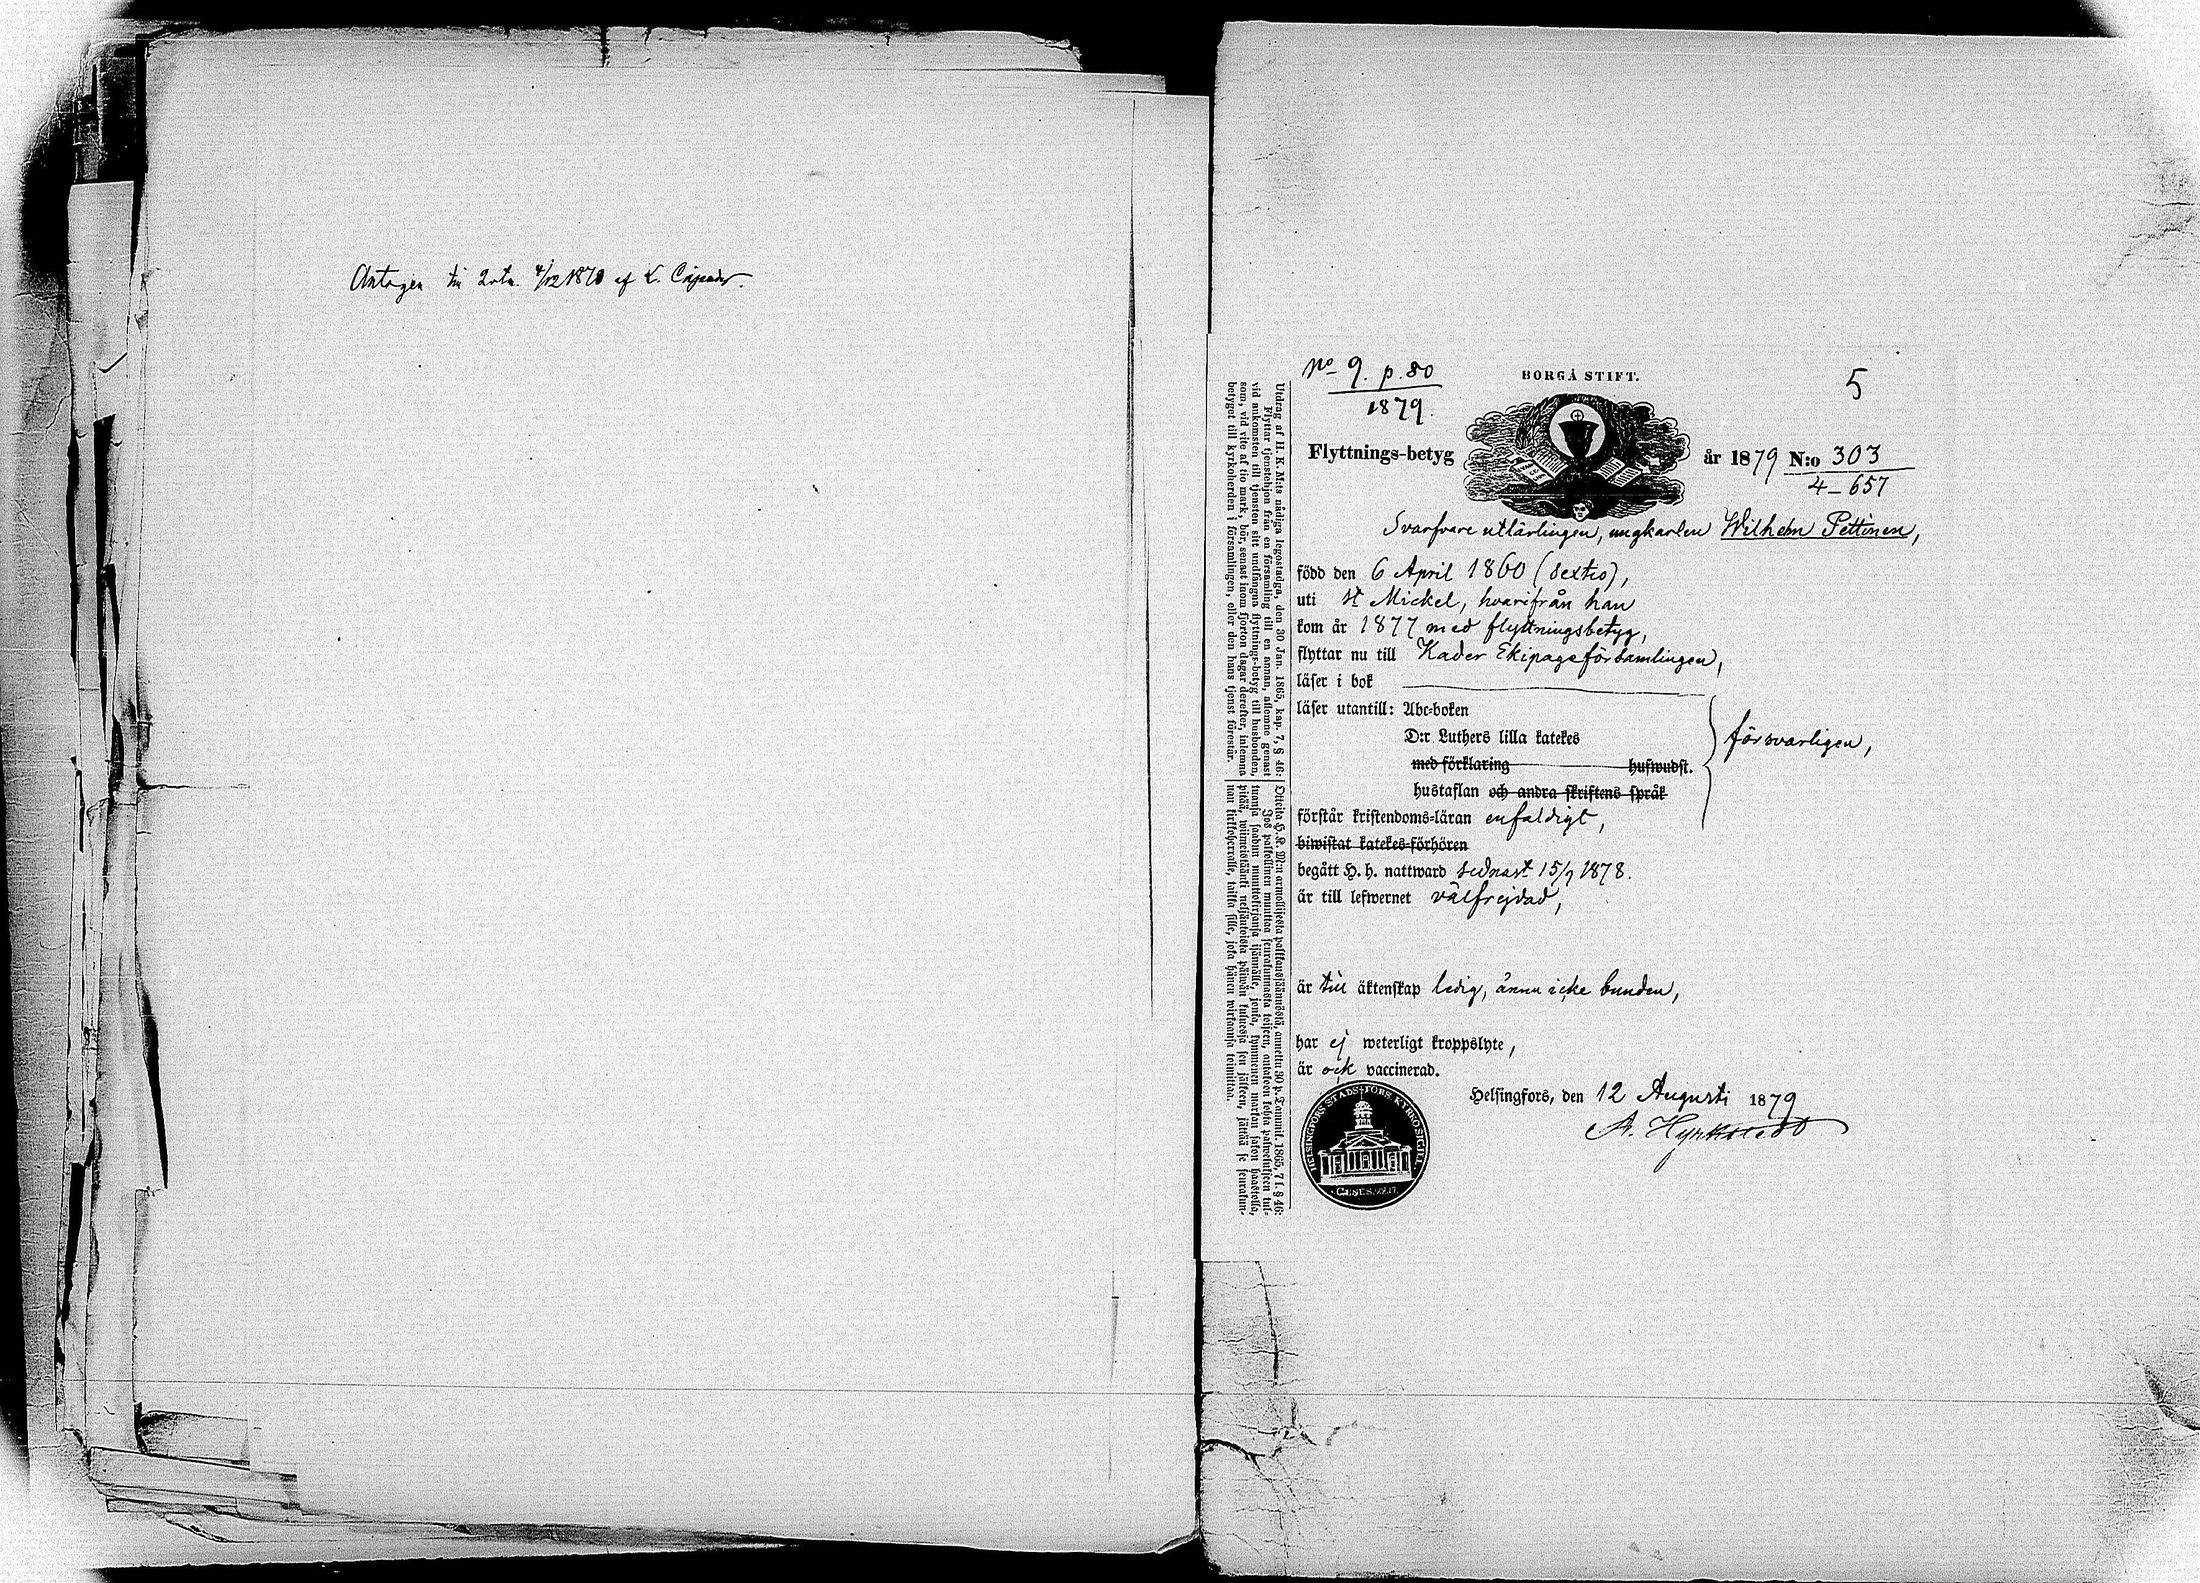 Antagen till 4/12 1878 af
No 9. p. 80
1879.
BORGÅ STIFT.
5
Flyttnings-betyg
år 1879 N:o 303
4-657
Svarfvare utlärlingen, ungkarlen Wilhelm Pettinen,
född den 6 April 1860 (sextio),
uti St Mickel, hvarifrån han
kom år 1877 med flyttningsbetyg,
flyttar nu till Kader Ekipageförsamlingen,
läser i bok
läser utantill: Abc-boken
D:r Luthers lilla katekes
försvarligen,
med förklaring huswudst.
hustaflan och andra skriftens språk
förstår kristendoms-läran enfaldigt,
biwistat katekes-förhören
begått H. h. nattward sednast 15/7 1878.
är till lefwernet välfrejdad,
är till äktenskap ledig, ännu icke bunden,
har ej weterligt kroppslyte,
är ock vaccinerad.
Helsingfors, den 12 Augusti 1879
HELSINGFORS STADS FÖRS. KYRKO SIGILL.
Utdrag af H. K. M:ts nådiga legostadga, den 30 Jan. 1865, kap. 7, § 46:
Flyttar tjenstehjon från en församling till en annan, aflemne genast
vid ankomsten till tjensten sitt undfångna flyttnings-betyg till husbonden,
som, vid vite af tio mark, bör, senast inom fjorton dagar derefter, inlemna
betyget till kyrkoherden i församlingen, eller den hans tjenst förestår.